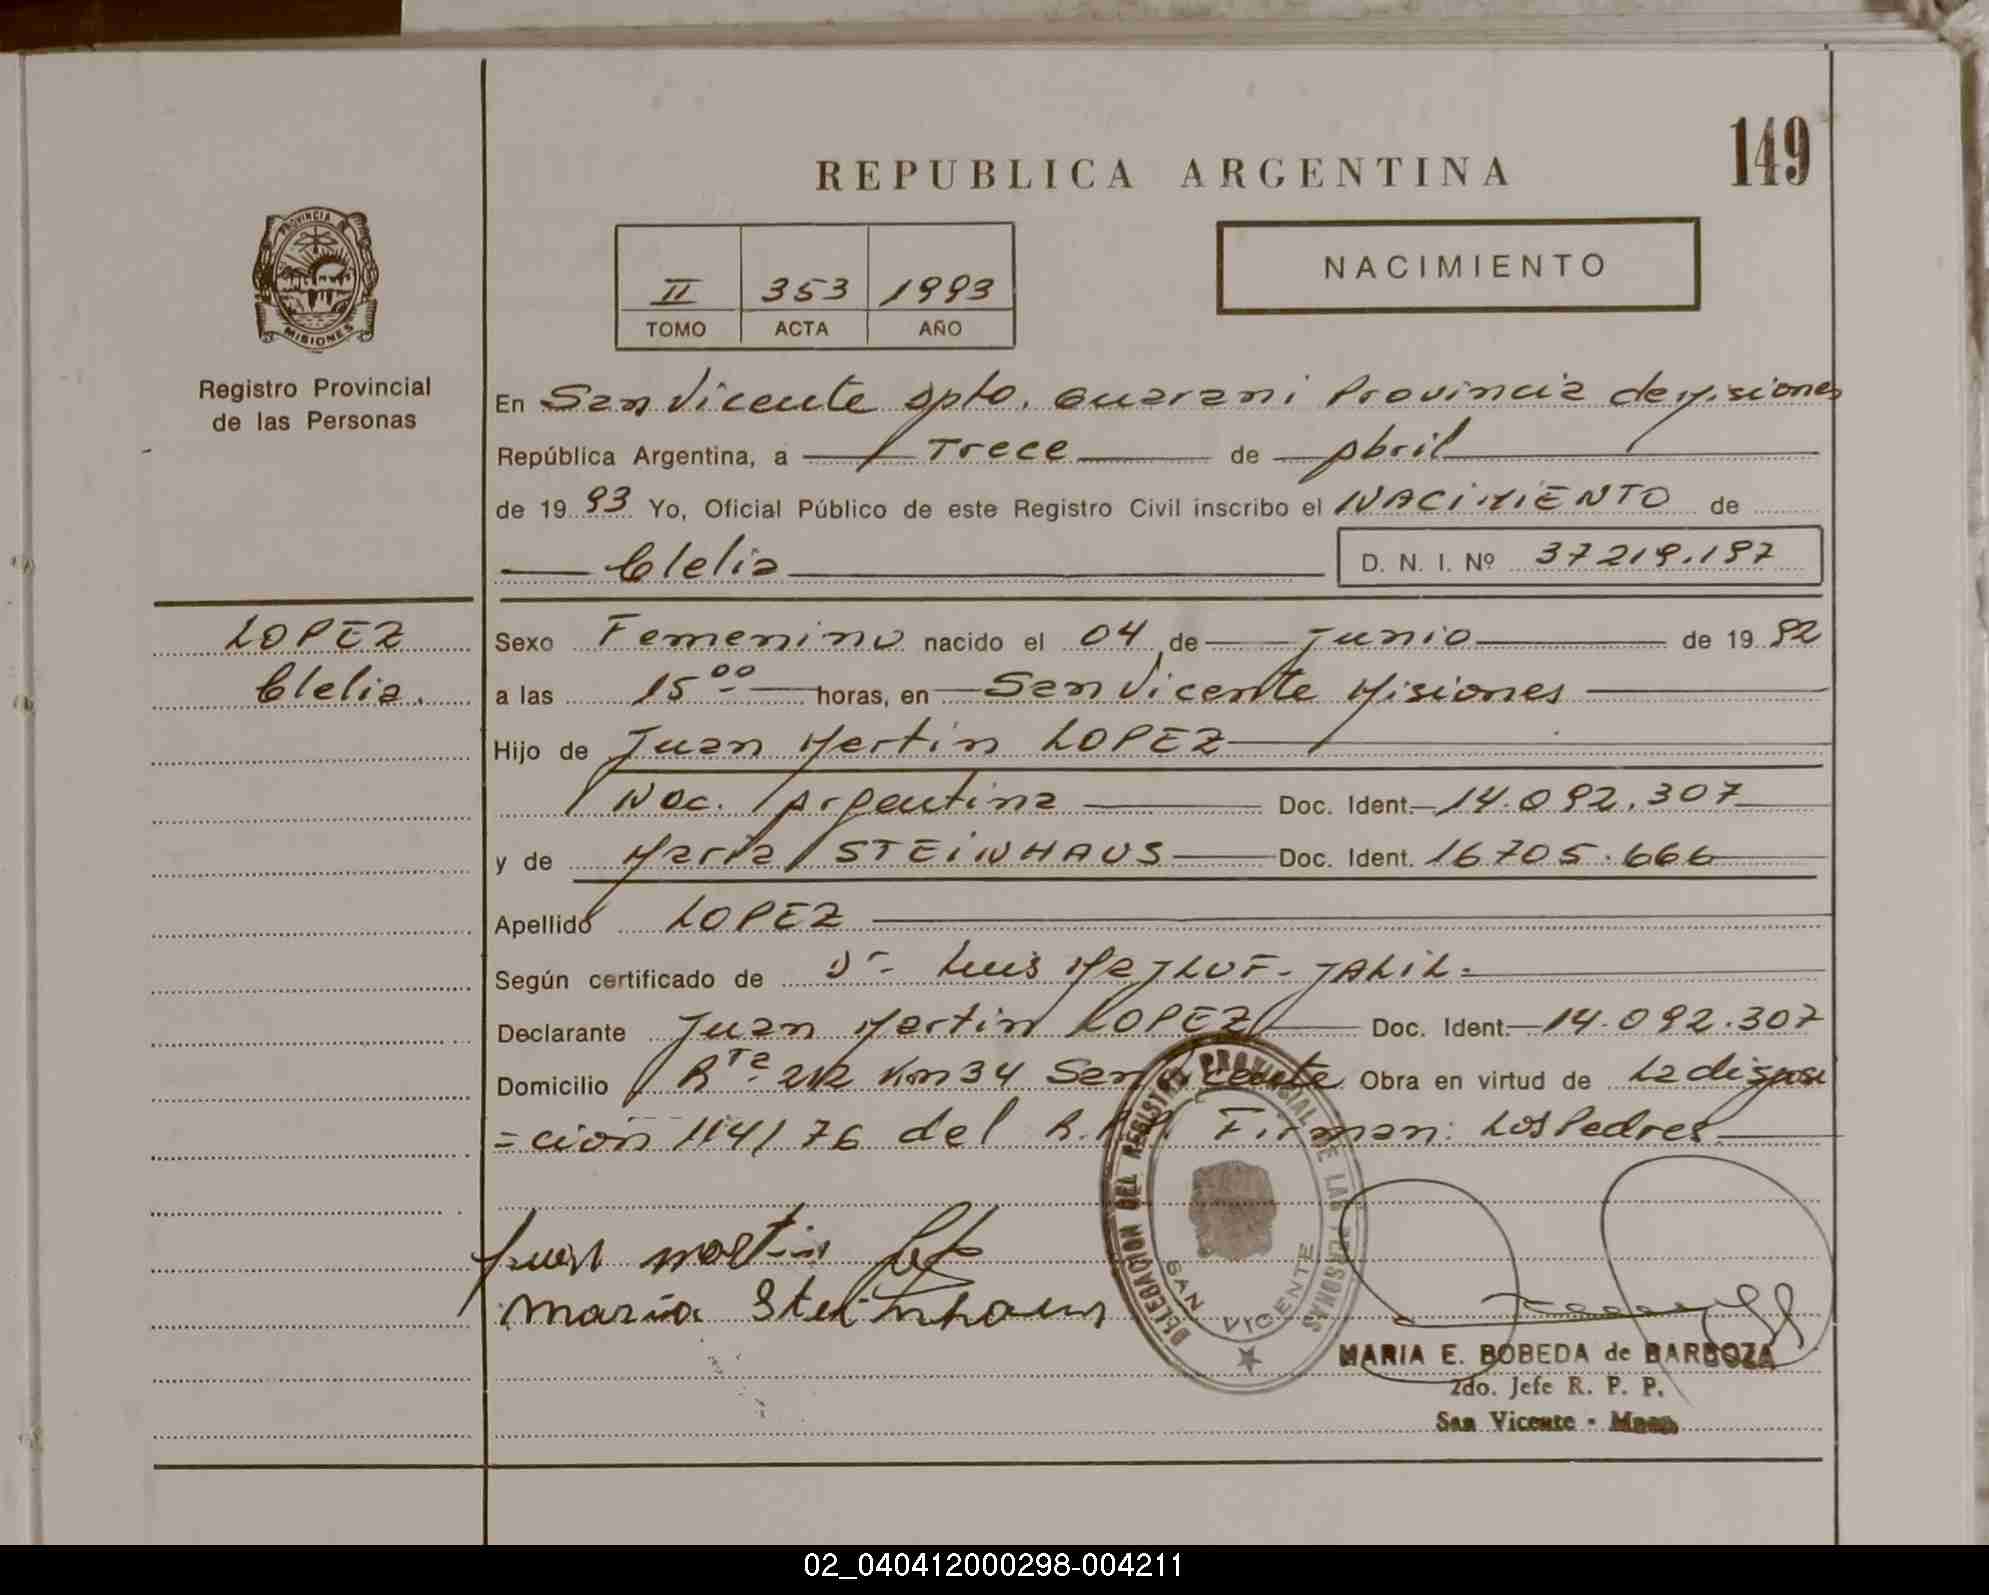 149
REPUBLICA ARGENTINA
PROVINCIA DE
MISIONES
Registro Provincial
de las Personas
II 353 1993
TOMO ACTA AÑO
NACIMIENTO
En San Vicente Dpto. Guarani Provincia de Misiones
República Argentina, a Trece de Abril
de 1993 Yo, Oficial Público de este Registro Civil inscribo el NACIMIENTO de
Clelia D. N. I. Nº 37219.197
LOPEZ
Clelia.
Sexo Femenino nacido el 04 de Junio de 1992
a las 15 00 horas, en San Vicente Misiones
Hijo de Juan Martin LOPEZ
Nac. Argentina Doc. Ident. 14.092.307
y de Maria STEINHAUS Doc. Ident. 16705.666
Apellido LOPEZ
Según certificado de Dr. Luis JALIL
Declarante Juan Martin LOPEZ Doc. Ident. 14.092.307
Domicilio Rta 212 Km 34 San Vicente Obra en virtud de La disposi
=cion 1141/76 del Firman: Los Padres
DELEGACION DEL REGISTRO PROVINCIAL DE LAS PERSONAS
SAN VICENTE
Juan Martin
Maria Steinhaus
MARIA E. BOBEDA de BARBOZA
2do. Jefe R. P. P.
San Vicente - Mnes.
02_040412000298-004211